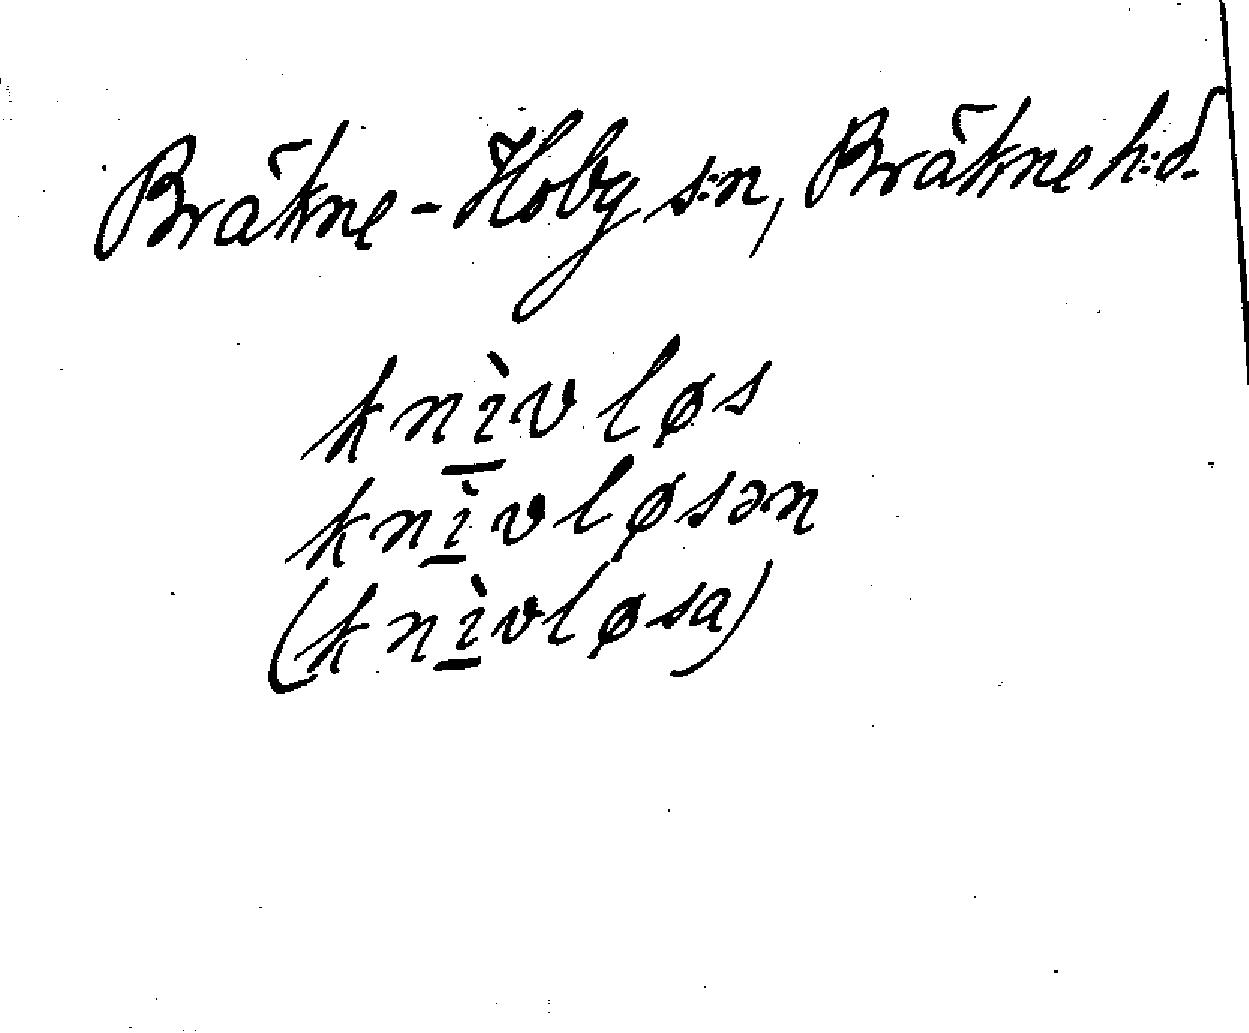 Bräkne-Hoby s:n, Bräkne h:d.
knì̲vløs
knì̲vløsən
(knì̲vløsa)